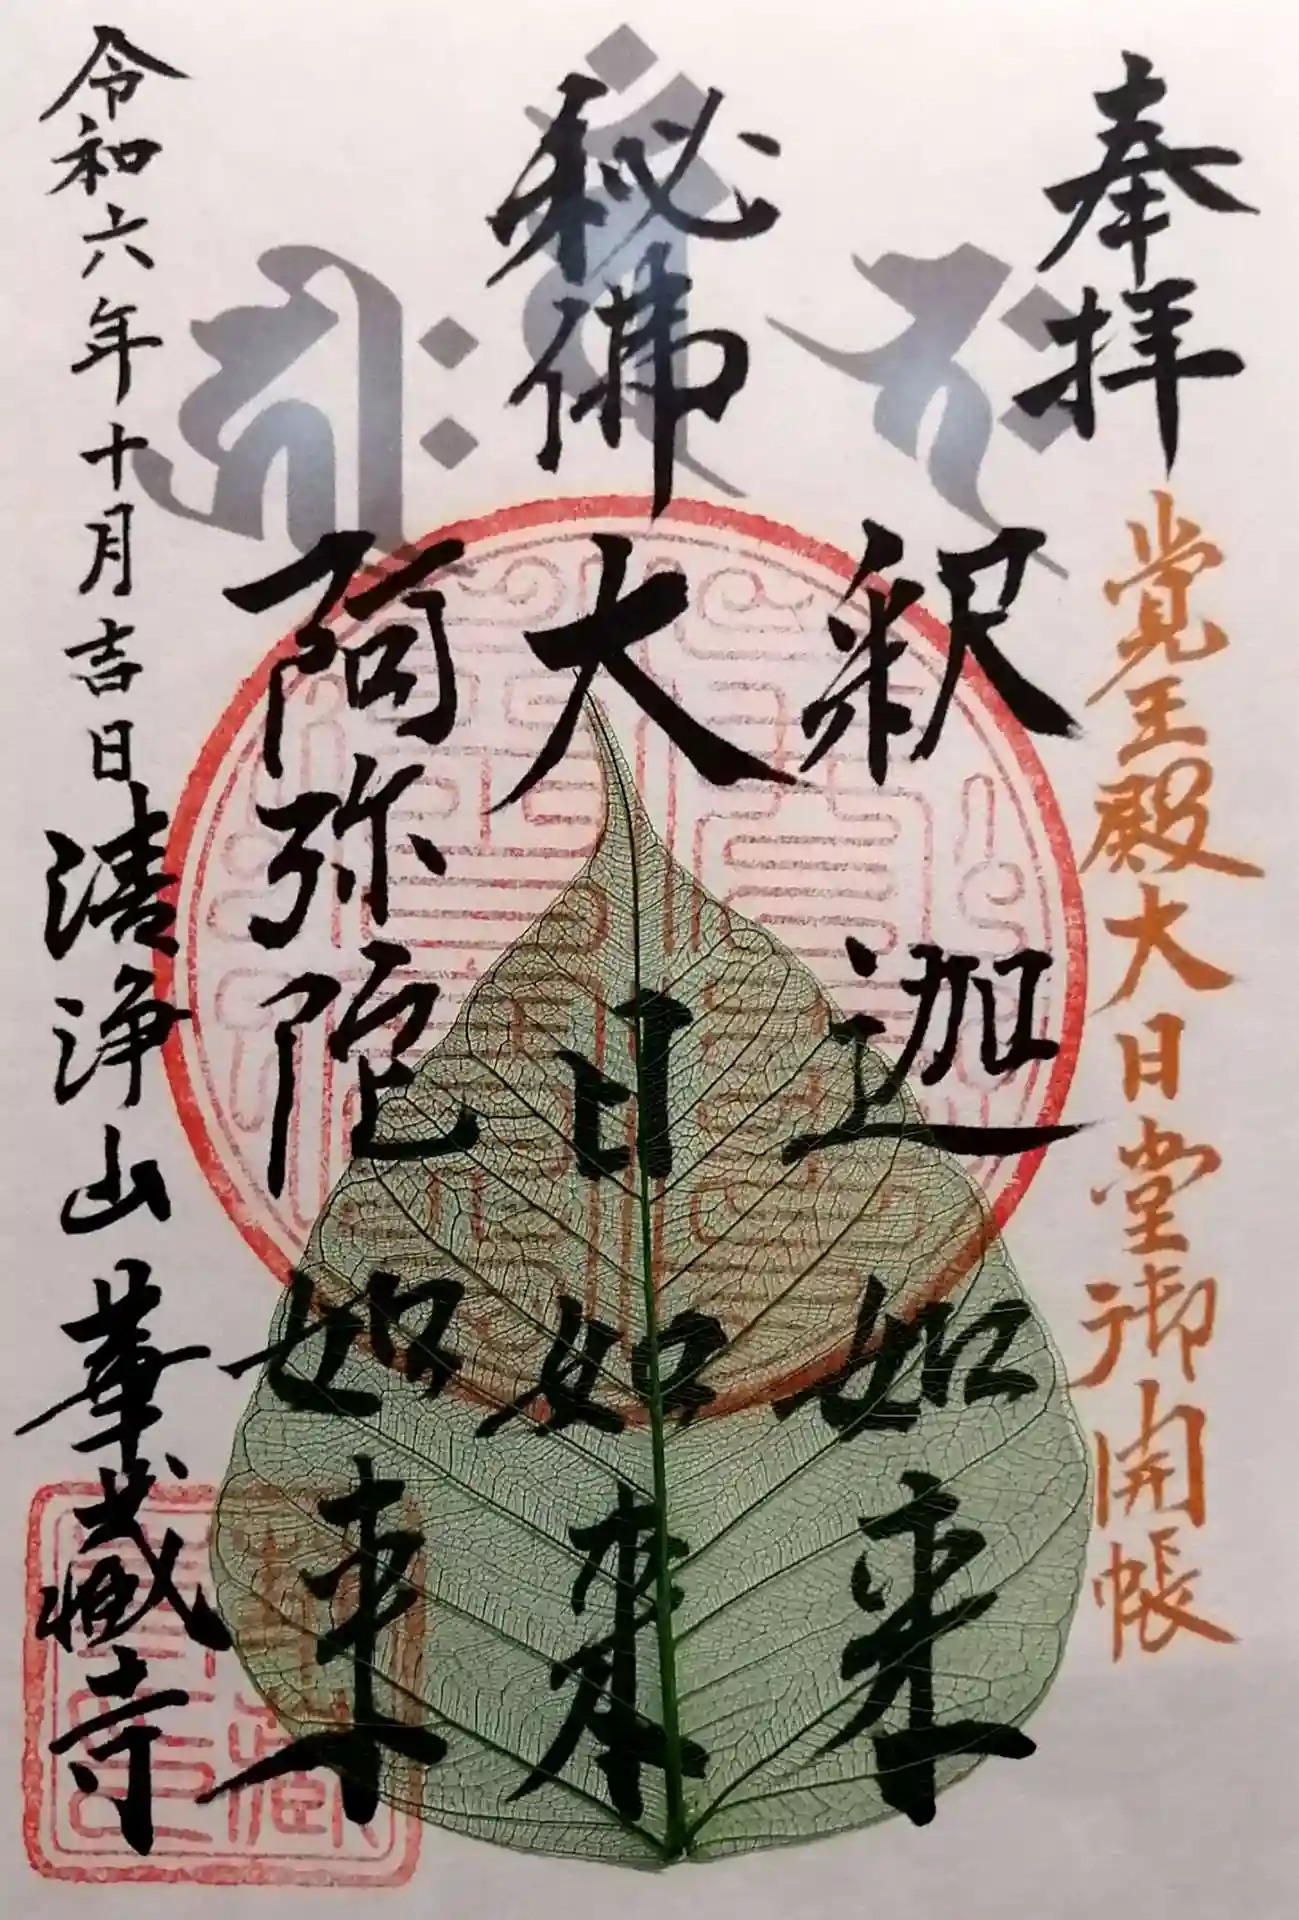 奉拝
覚王殿大日堂御開帳
秘佛
釈迦如来
大日如来
阿弥陀如来
令和六年十月吉日
清浄山華蔵寺